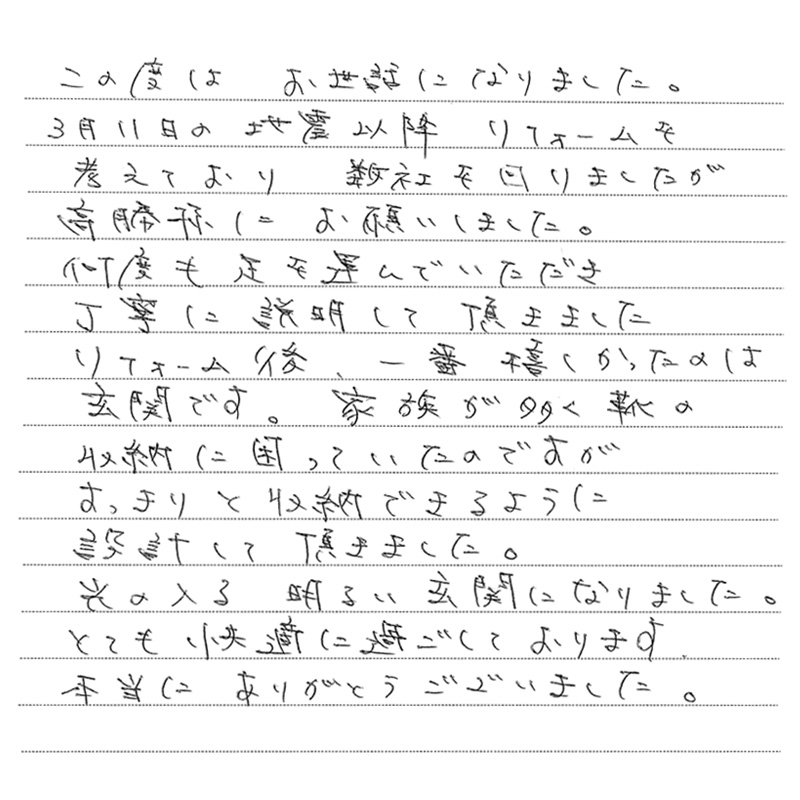 この度は お世話になりました。
3月11日の 地震以降 リフォームを
考えており 数社を回りましたが
に お願いしました。
何度も足を運んでいただき
丁寧に説明して 頂きました
リフォーム後、一番嬉しかったのは
玄関です。 家族が多く靴の
収納に困っていたのですが
すっきりと収納できるように
設計して 頂きました。
光の入る 明るい玄関になりました。
とても快適に過ごしております.
本当に ありがとうございました。